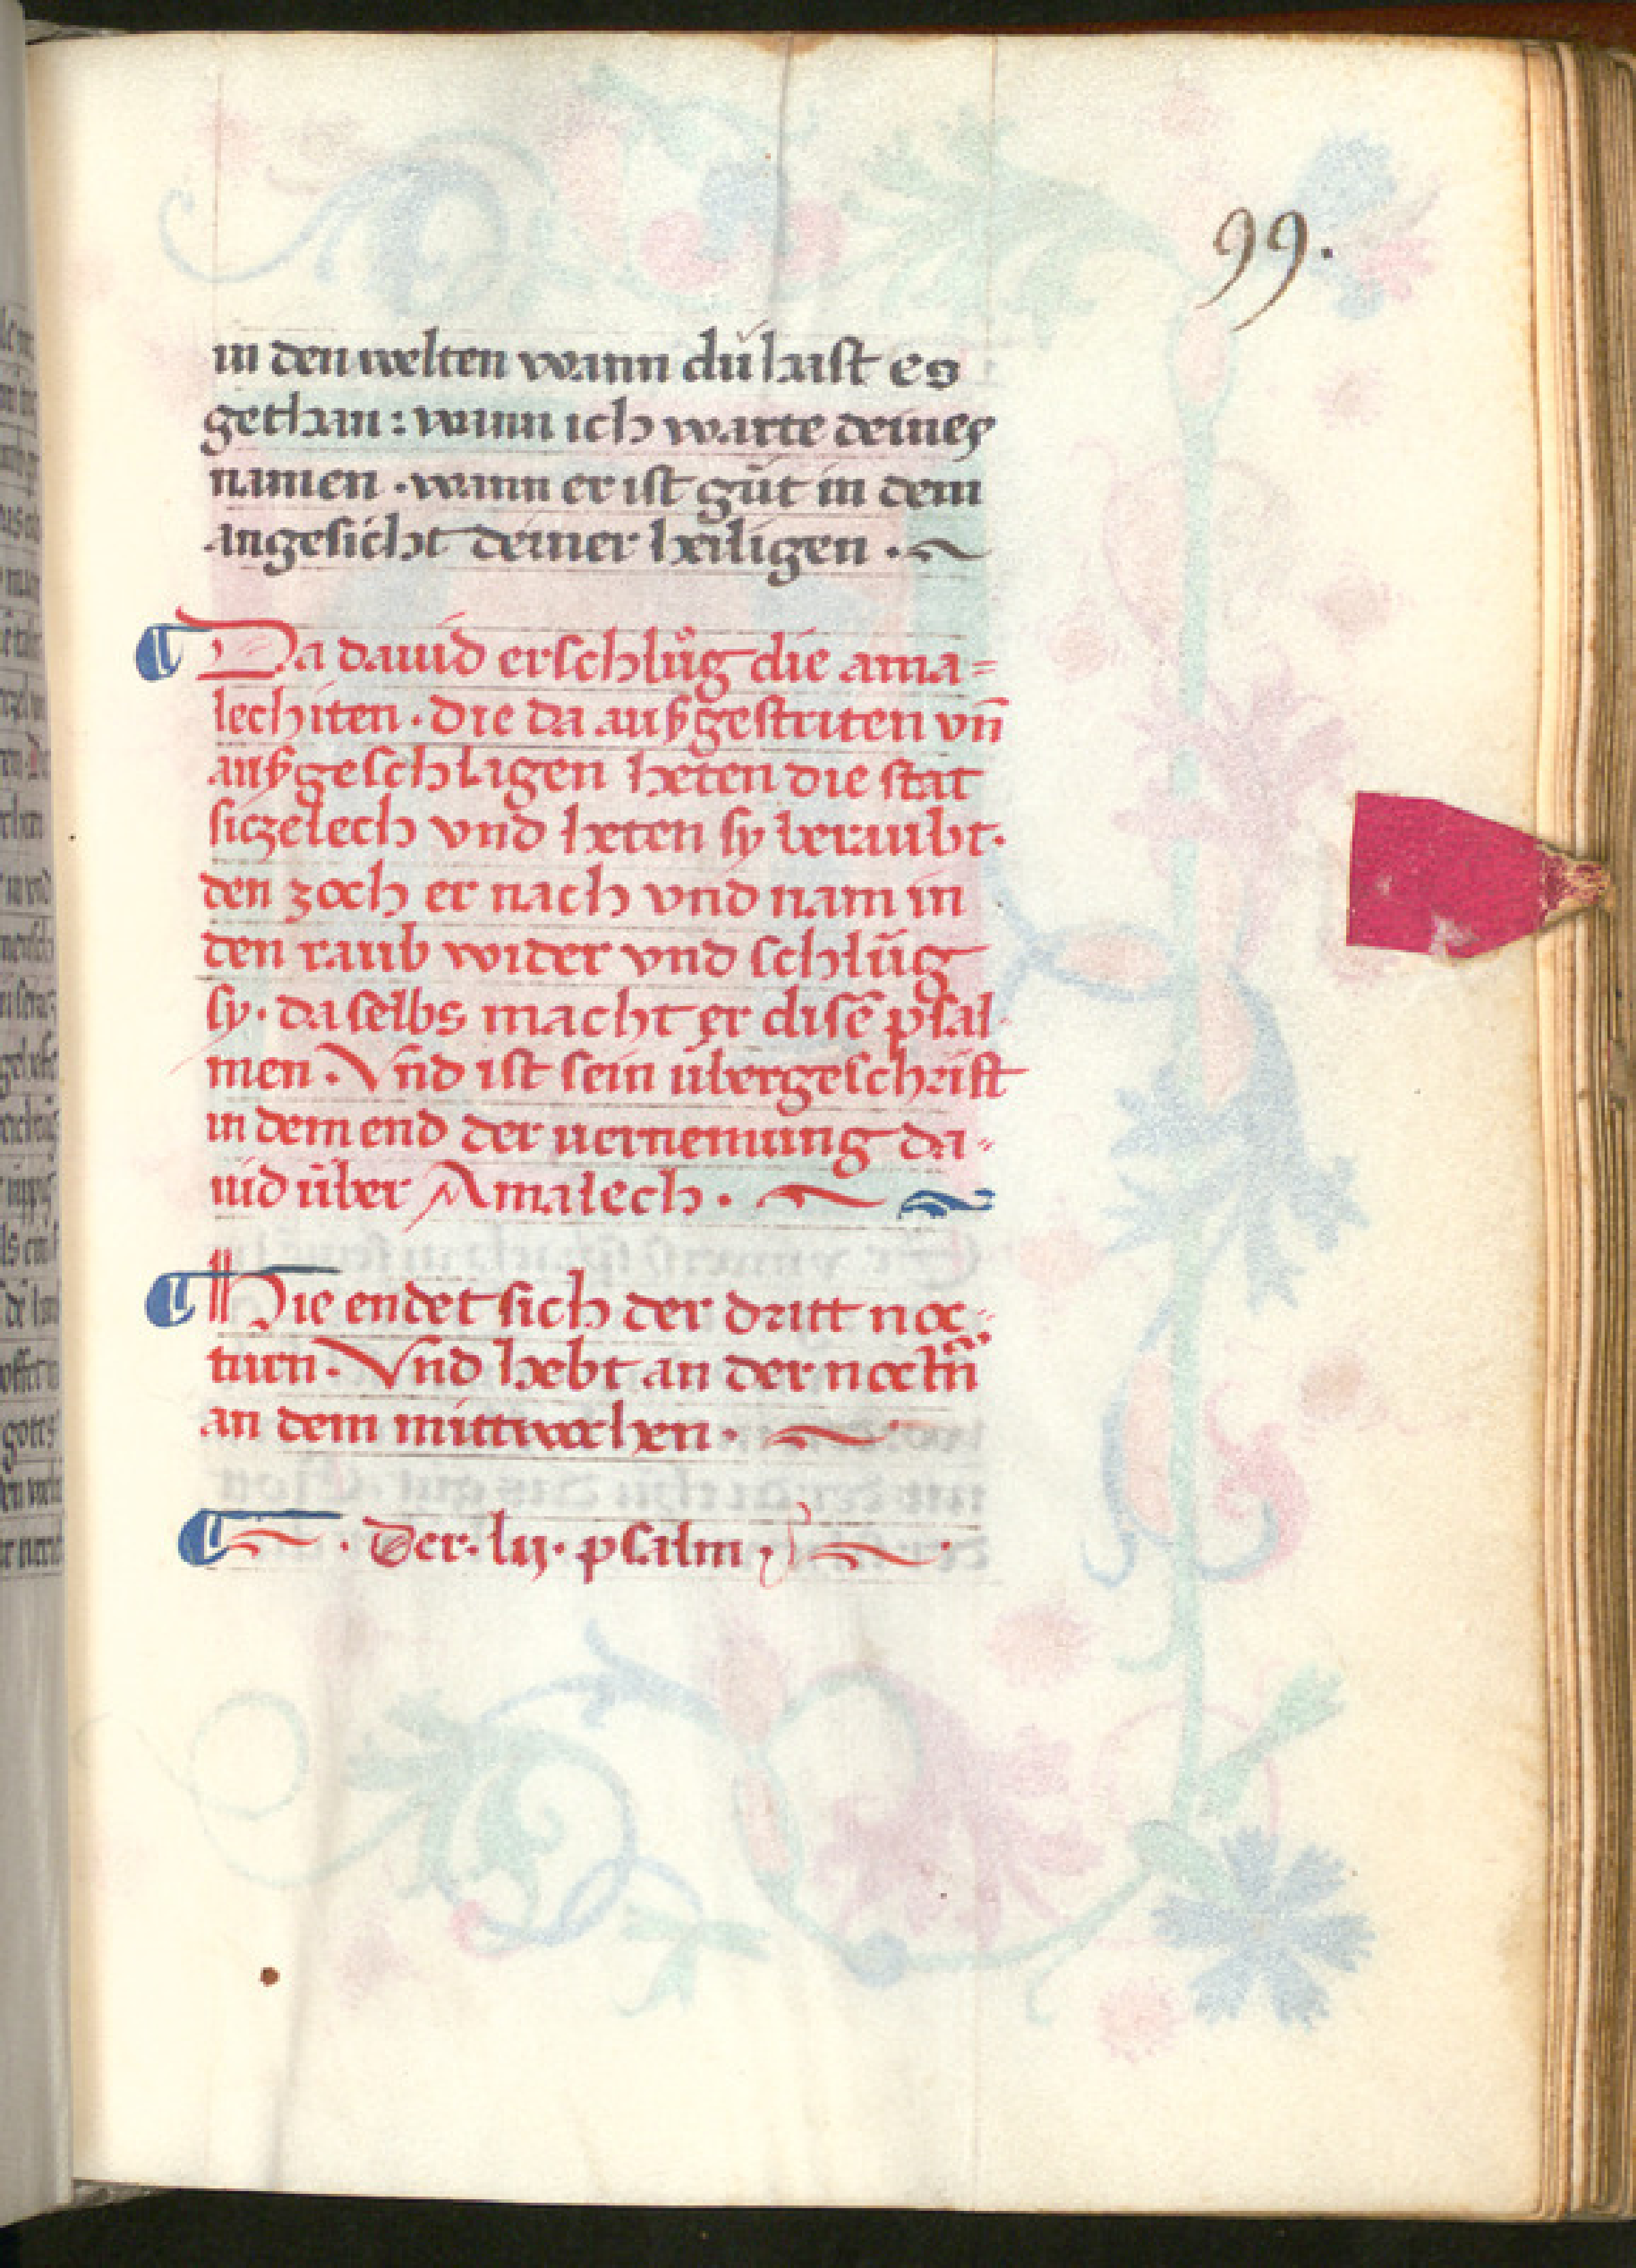 99.
in den welten wann dũ hast es
gethan : wann ich warte deines
namen · wann er ist gũt in dem
angesicht deiner heiligen ·
¶ Da dauid erschlůg die ama=
lechiten · die da außgestriten vñ
außgeschlagen heten die stat
siczelech vnd heten sy beraubt ·
den zoch er nach vnd nam in
den raub wider vnd schlũg
sy · daselbs macht er disẽ psal-
men · Vnd ist sein übergeschrift
in dem end der uernemung da=
uid über Amalech ·
¶ Hie endet sich der dritt noc=
turn · Vnd hebt an der noctũ
an dem mittwochen ·
¶ · Der · lij · psalm